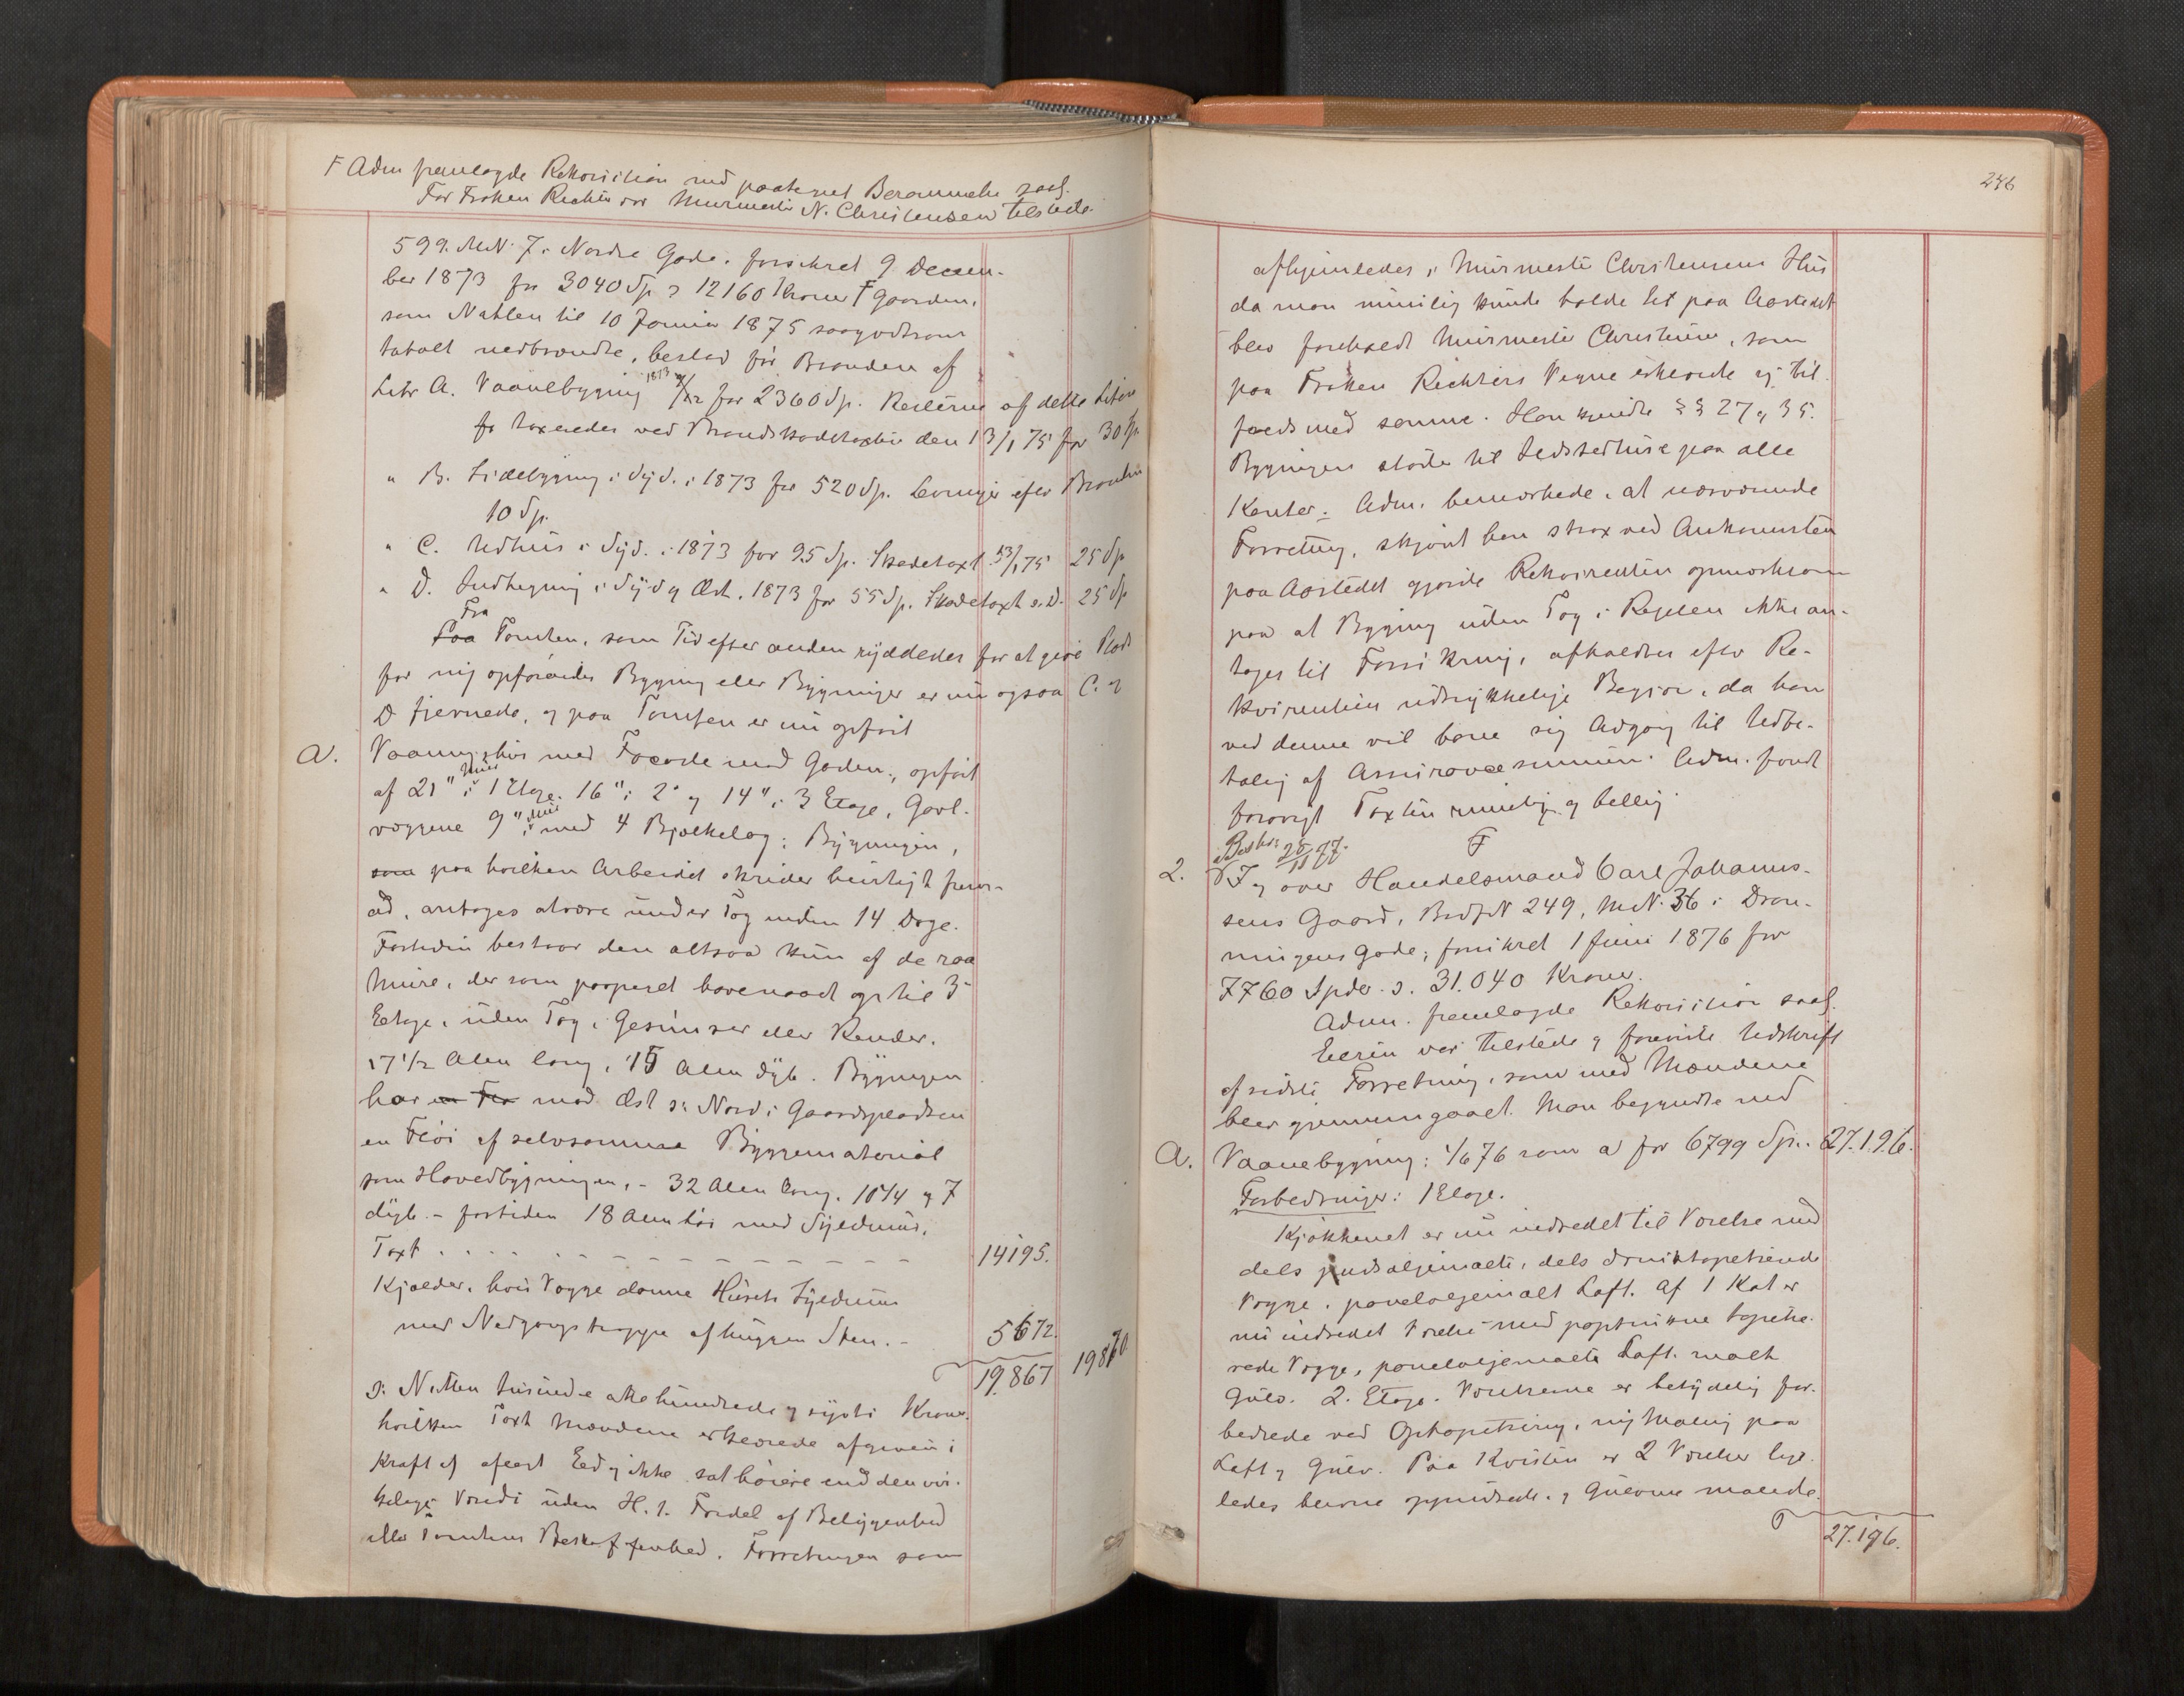 F Adm fremlagde Rekvisition med paategnet Berammelse saal.
For Frøken Richter var Murmester N. Christensen tilstede.
599. MN. 7 i Nordre Gade. forsikret 9 Decem-
ber 1873 for 3040 Sp. ɔ: 12160 Kroner F Gaarden,
som Natten til 10 Januar 1875 saagodtsom
totalt nedbrændte, bestod før Branden af
Litr A. Vaanebygning 1873 9/12 for 2360 Sp. Resterne af dette Litra
taxeredes ved Brandskadetaxten den 13/1 75 for 30 Sp.
" B. Sidebygning i Syd. i 1873 for 520 Sp. Levninger efter Branden
10 Sp.
" C. Udhus i Syd. i 1873 for 95 Sp. Skadetaxt 13/1 75 25 Sp
" D. Indhegning i Syd og Øst. 1873 for 55 Sp. Skadetaxt s. D. 25 Sp
Fra
Paa Tomten, som Tid efter anden ryddedes for at give Plads
for ny opførendes Bygning eller Bygninger er nu ogsaa C. og
D fjernede, og paa Tomten er nu opført
A. Vaaningshus med Facade mod Gaden, opført
af 21" Mur i 1 Etage. 16" i 2 og 14" i 3 Etage, Gavl-
væggene 9" Mur med 4 Bjælkelag: Bygningen,
som paa hvilken Arbeidet skrider hurtigt frem-
ad, antages at være under Tag inden 14 Dage.
Fortiden bestaar den altsaa kun af de raa
Mure, der som paapeget have naaet op til 3
Etage, uden Tag, Gesimser eller Render.
17 1/2 Alen lang, 15 Alen dyb. Bygningen
har en Flø mod Øst ɔ: Nord i Gaardspladsen
en Fløi af selvsamme Byggemateriál
som Hovedbygningen, - 32 Alen lang, 10 1/4 og 7
dyb. - fortiden 18 Alen høi med Syldmur.
Taxt . . . . . . . 14195.
Kjælder, hvis Vægge danne Husets Syldmur
med Nedgangstrappe af huggen Sten. - 5672.
19867 19870
ɔ: Nitten tusinde otte hundrede og sytti Kroner
hvilken Taxt Mændene erklærede afgiven i
Kraft af aflagt Eed og ikke sat høiere end den vir-
kelige Værdi uden H. t. Fordel af Beliggenhed
eller Tomtens Beskaffenhed. Forretningen som
246
afhjemledes i Murmester Christensens Hus
da man umulig kunde holde det paa Aastedet
blev foreholdt Murmester Christensen, som
paa Frøken Richters Vegne erklærede sig til-
freds med samme. Han kjendte §§ 27 og 35.
Bygningen støder til Udstedhuse paa alle
Kanter. Adm. bemærkede, at nærværende
Forretning, skjønt han strax ved Ankomsten
paa Aastedet gjorde Rekvirenten opmærksom
paa at Bygning uden Tag i Regelen ikke an-
tages til Forsikring, afholdtes efter Re-
kvirentens udtrykkelige Begjær, da han
ved denne vil bane sig Adgang til Udbe-
taling af Assurancesummen. Adm. fandt
forøvrigt Taxten rimelig og billig.
Beskr. 28/11 77. F
2. Ny over Handelsmand Carl Johanns-
sens Gaard, BrdfN 249, MN. 36 i Dron-
ningens Gade; forsikret 1 Juni 1876 for
7760 Spdr. ɔ: 31.040 Kroner.
Adm. fremlagde Rekvisition saal.
Eieren var tilstede og foreviste Udskrift
af sidste Forretning, som med Mændene
blev gjennemgaaet. Man begyndte med
A. Vaanebygning: 1/6 76 som a for 6799 Sp. 27.196.
Forbedringer: 1 Etage.
Kjøkkenet er nu indredet til Værelse med
dels pudsoljemalte, dels tapetserede
Vægge, paneloljemalt Loft. Af 1 er
nu indredet Værelse med tapetse-
rede Vægge, paneloljemalte Loft. malt
Gulv. 2. Etage. Værelserne er betydelig for-
bedrede ved Optapetsering, ny Maling paa
Loft og Gulv. Paa Kvisten er 2 Værelser lige-
ledes og Gulvene malede.
27.196.